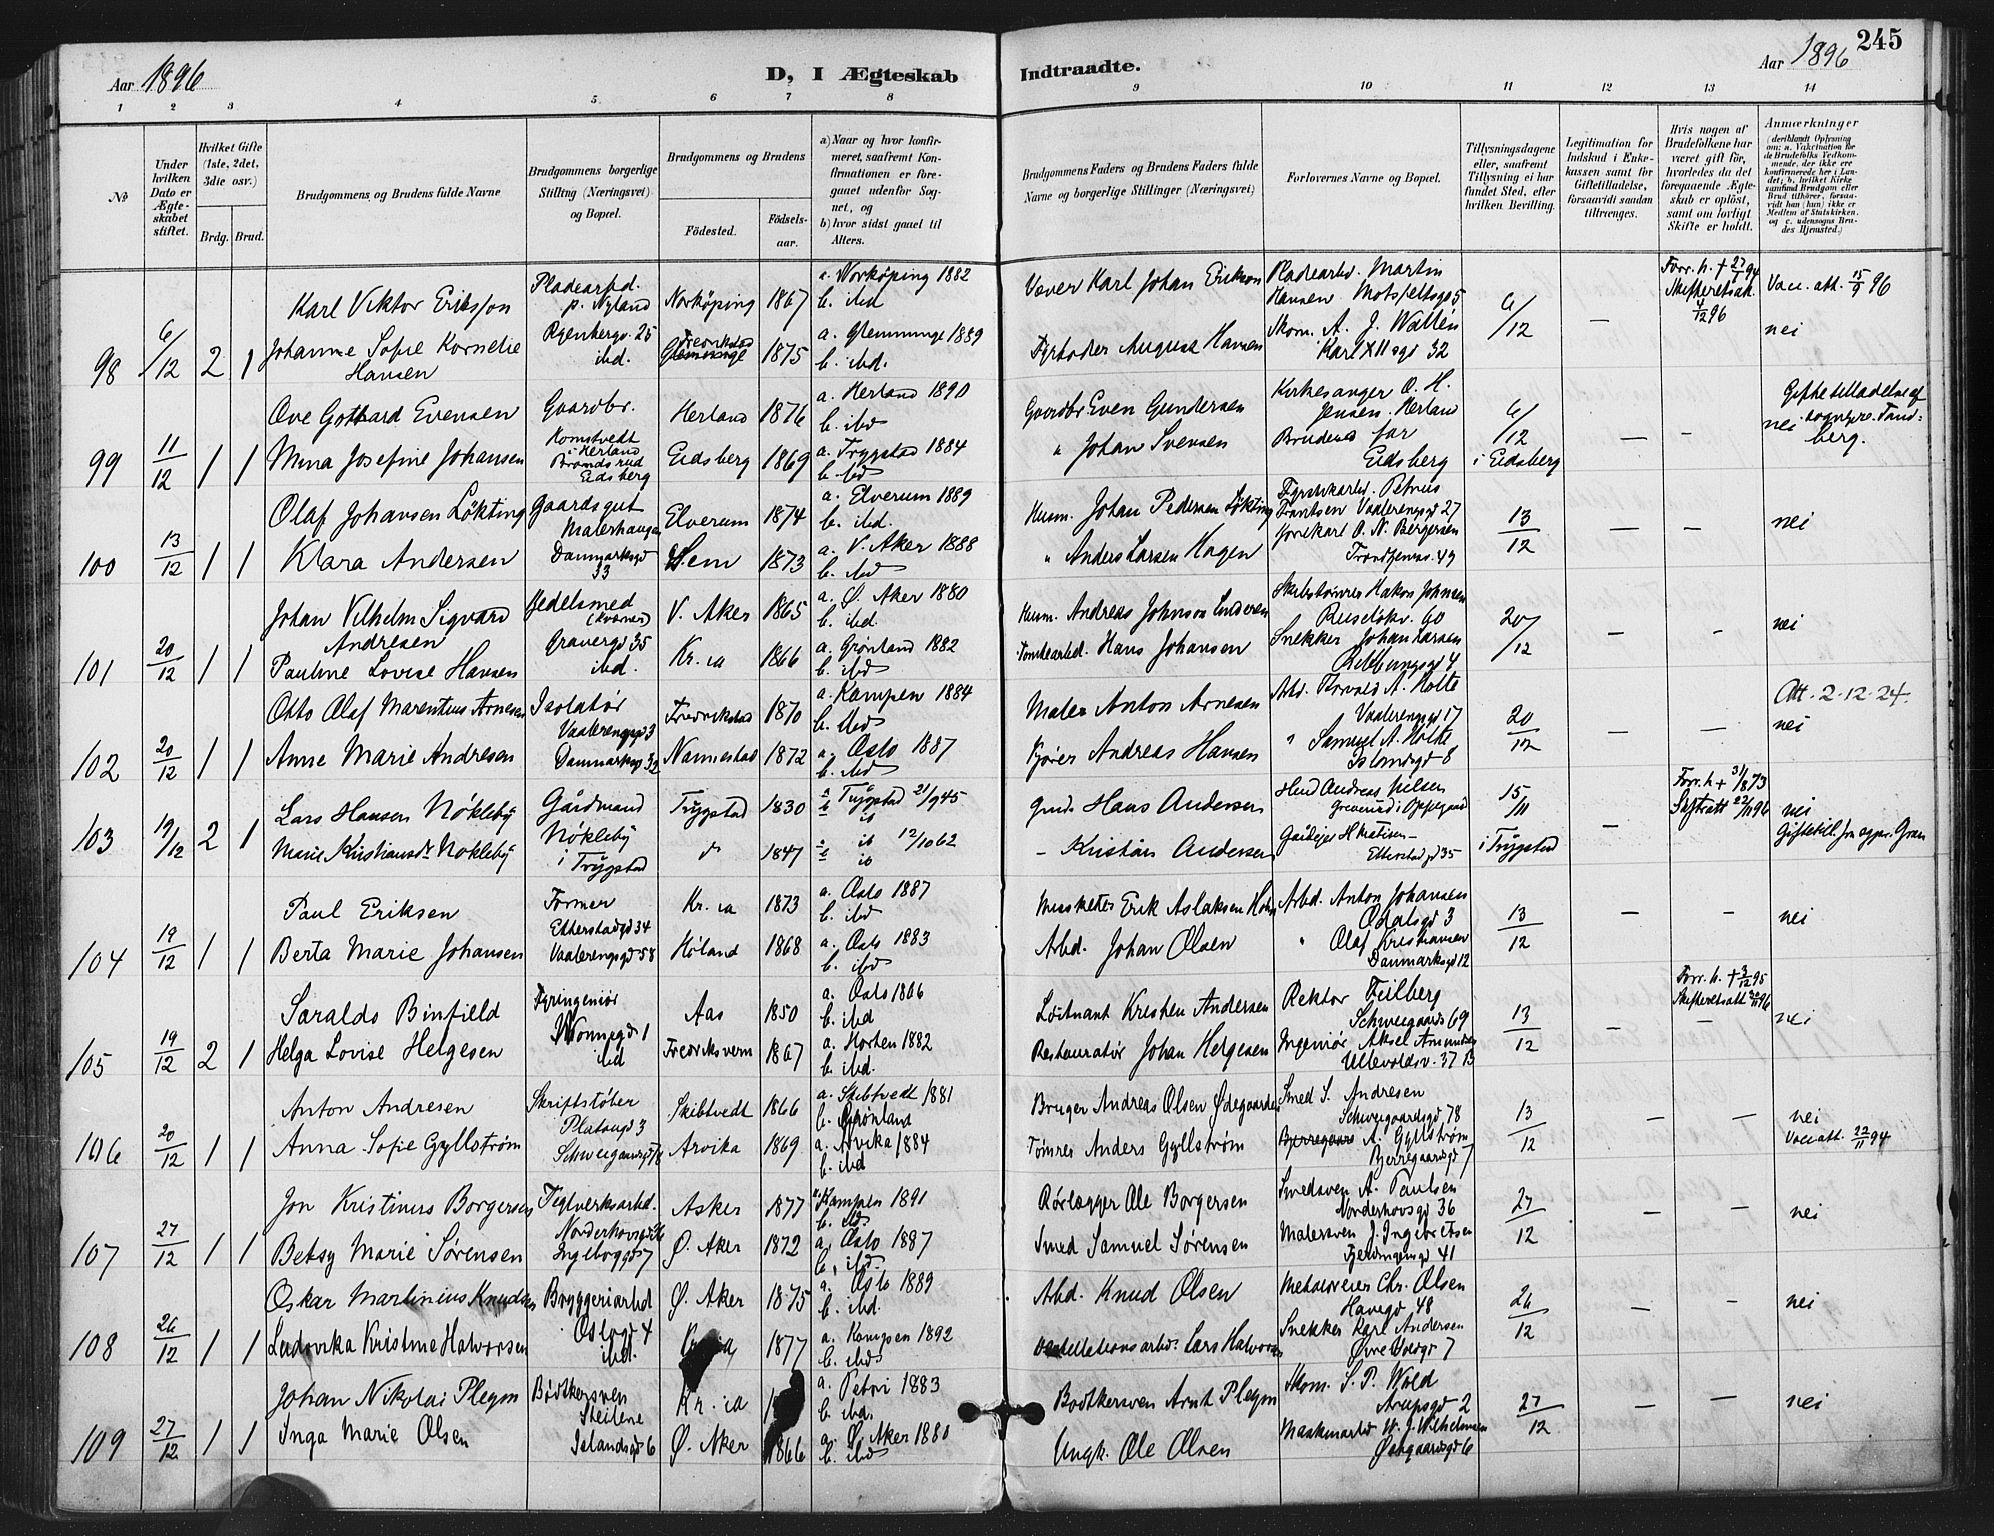 245
Aar 1896
D, I Ægteskab Indtraadte.
Aar 1896
1 2 3 4 5 6 7 8 9 10 11 12 13 14
No
Under hvilken Dato er Ægteskabet stiftet.
Hvilket Gifte (1ste, 2det, 3die osv.)
Brdg. Brud.
Brudgommens og Brudens fulde Navne
Brudgommens borgerlige Stilling (Næringsvei) og Bopæl.
Brudgommens og Brudens
Fødested.
Fødselsaar.
a) Naar og hvor konfirmeret, saafremt Konfirmationen er foregaaet udenfor Sognet, og
b) hvor sidst gaaet til Alters.
Brudgommens Faders og Brudens Faders fulde Navne og borgerlige Stillinger (Næringsvei)
Forlovernes Navne og Bopæl.
Tillysningsdagene eller, saafremt Tillysning ei har fundet Sted, efter hvilken Bevilling.
Legitimation for Indskud i Enkekassen samt for Giftetilladelse, forsaavidt saadan tiltrenges.
Hvis nogen af Brudefolkene har været gift før, hvorledes da det foregaaende Ægteskab er opløst, samt om lovligt Skifte er holdt.
Anmærkninger
(deriblandt Oplysning om: a. Vakcination for de Brudefolks Vedkommende, der ikke ere konfirmerede her i Landet; b. hvilket Kirkesamfund Brudgom eller Brud tilhører, forsaavidt han (hun) ikke er Medlem af Statskirken, og c. udensogns Brudes Hjemsted.)
98 6/12 2 1
Karl Viktor Eriksson
Pladearbd. p. Nyland
Norköping 1867
a. Norköping 1882
b. ibd
Væver Karl Johan Erikson
Pladearbd. Martin Hansen Motzfeltsgd 5
6/12 —
Forr. h. + 27/1 94
Skifteretsatt. 4/12 96
Vacc. att. 15/9 96
Johanne Sofie Kornelie Hansen
Ryenbergv. 25 ibd.
Fredrikstad Glemminge 1875
a. Glemminge 1889
b. ibd.
Fyrbøder August Hansen
Skom. A. J. Wallén Karl XII sgd 32
nei
99 11/12 1 1
Ove Gotthard Evensen
Gaardbr. Komstvedt i Herland
Herland 1876
a. Herland 1890
b. ibd
Gaardbr Even Gundersen
Kirkesanger O. H. Jensen. Herland
6/12 i Eidsberg — —
nei
Giftetilladelse af sognepr. Tandberg.
Mina Josefine Johansen
Brandsrud Eidsberg
Eidsberg 1869
a. Trygstad 1884
b. ibd
" Johan Svensen
Brudens far Eidsberg
100 13/12 1 1
Olaf Johansen Løkting
Gaardsgut Malerhaugen
Elverum 1874
a. Elverum 1889
b. ibd.
Husm. Johan Pedersen Løkting
Fyrstikarbd. Petrus Frantsen Vaalerengsgd 27
13/12 — — nei
Klara Andersen
Danmarksgd 33
Hem 1873
a. V. Aker 1888
b. ibd
" Anders Larsen Hagen
Kjørekarl O. N. Bergersen Trondhjemsv. 49
101 20/12 1 1
Johan Vilhelm Sigvard Andresen
Kjedelsmed (Kværner)
V. Aker 1865
a. Ø. Aker 1880
b. ibd.
Husm. Andreas Johnson Enderen
Skibstømrer Hakon Johnsen Ruseløkv. 60
20/12 — — nei
Pauline Lovise Hansen
Gravergd 35 ibd.
Kr.ia 1866
a. Grønland 1882
b. ibd
Tomtearbd. Hans Johansen
Snekker Johan Larsen Rebbungsgd 4
102 20/12 1 1
Otto Olaf Marentius Arnesen
Isolatør Vaalerengsgd 3
Fredrikstad 1870
a. Kampen 1884
b. ibd
Maler Anton Arnesen
Arbd. Torvald A. Holte Vaalerengsgd 17
20/12 — —
Att. 2.12.24.
nei
Anne Marie Andresen
Danmarksgd 32
Nannestad 1872
a. Oslo 1887
b. ibd
Kjører Andreas Hansen
" Samuel A. Holte Islandsgd 8
103 19/12 2 1
Lars Hansen Nökleby
Gårdmand Nökleby i Trygstad
Trygstad 1830
a b Trygstad 21/9 45
ib
Gmd. Hans Andersen
Hmd Andreas Nilsen Greverud i Oppegaard
15/11 i Trygstad —
Forr. h + 31/8 73
Skiftratt 22/11 96
nei
Giftetill. fra sgpr. Gran
Marie Kristiansdr Nökleby
1847
ib 12/10 62
ib
— Kristian Andersen
Gaardejer H Kristisen — Etterstadgd 35
104 19/12 1 1
Paul Eriksen
Former Etterstadgd 34
Kr.ia 1873
a. Oslo 1887
b. ibd
Musketer Erik Aslaksen
Arbd. Anton Johansen Odalsgd 3
13/12 — — nei
Berta Marie Johansen
Vaalerengsgd 58
Høland 1868
a. Oslo 1883
b. ibd
Arbd. Johan Olsen
" Olaf Kristiansen Danmarksgd 12
105 19/12 2 1
Saralds Binfield
Fyringeniør
Aas 1850
a. Oslo 1866
b. ibd
Løitnant Kristen Andersen
Rektor Feilberg Schweigaards 69
13/12 — —
Forr. h. + 3/12 95
nei
Helga Lovise Helgesen
ibd
Fredriksvern 1867
a. Horten 1882
b. ibd.
Restauratør Johan Helgesen
Ingeniør Aksel Amundsen Ullevoldsv. 37 B
106 20/12 1 1
Anton Andresen
Skriftstøber Platousgd 3
Skibtvedt 1866
a. Skibtvedt 1881
b. Grønland
Bruger Andreas Olsen Ødegaarden
Smed S. Andresen Schweigaardsgd 78
13/12 — — nei
Anna Sofie Gyllström
Schweigaardsgd 78
Arvika 1869
a. Arvika 1884
b. ibd
Tømrer Anders Gyllström
A. Gyllström Bjerregaardsgd 7
Vacc. att. 22/11 94
107 27/12 1 1
Jon Kristinus Borgersen
Teglverksarbd. Norderhovsgd 36
Asker 1877
a. Kampen 1891
b. ibd
Rørlægger Ole Borgersen
Smedsven A. Paulsen Norderhovsgd 36
27/12 — — nei
Betsy Marie Sørensen
Ingeborggd 7
Ø. Aker 1872
a. Oslo 1887
b. ibd.
Smed Samuel Sørensen
Malersven J. Ingebretsen Fjeldingensgd 41
108 26/12 1 1
Oskar Martinius Knudsen
Bryggeriarbd Oslogd 4
Ø. Aker 1875
a. Oslo 1889
b. ibd.
Arbd. Knud Olsen
Metaldreier Chr. Olsen Havegd 48
26/12 — — nei
Ludovika Kristine Halvorsen
ibd.
1877
a. Kampen 1892
b. ibd
Lars Halvorsen
Snekker Karl Andersen Øvre Voldgd 7
109 27/12 1 1
Johan Nikolai Pleym
Bødtkersven Steilene
Kr.ia
a. Petri 1883
b. ibd.
Bødtkersven Arnt Pleym
Skom. S. P. Wold Arupsgd 2
27/12 — — nei
Inga Marie Olsen
Islandsgd 6
Ø. Aker 1866
a. Ø. Aker 1880
b. ibd
Ungk. Ole Olsen
Maskinarbd W. J. Wilhelmsen Østgaardsgd 6